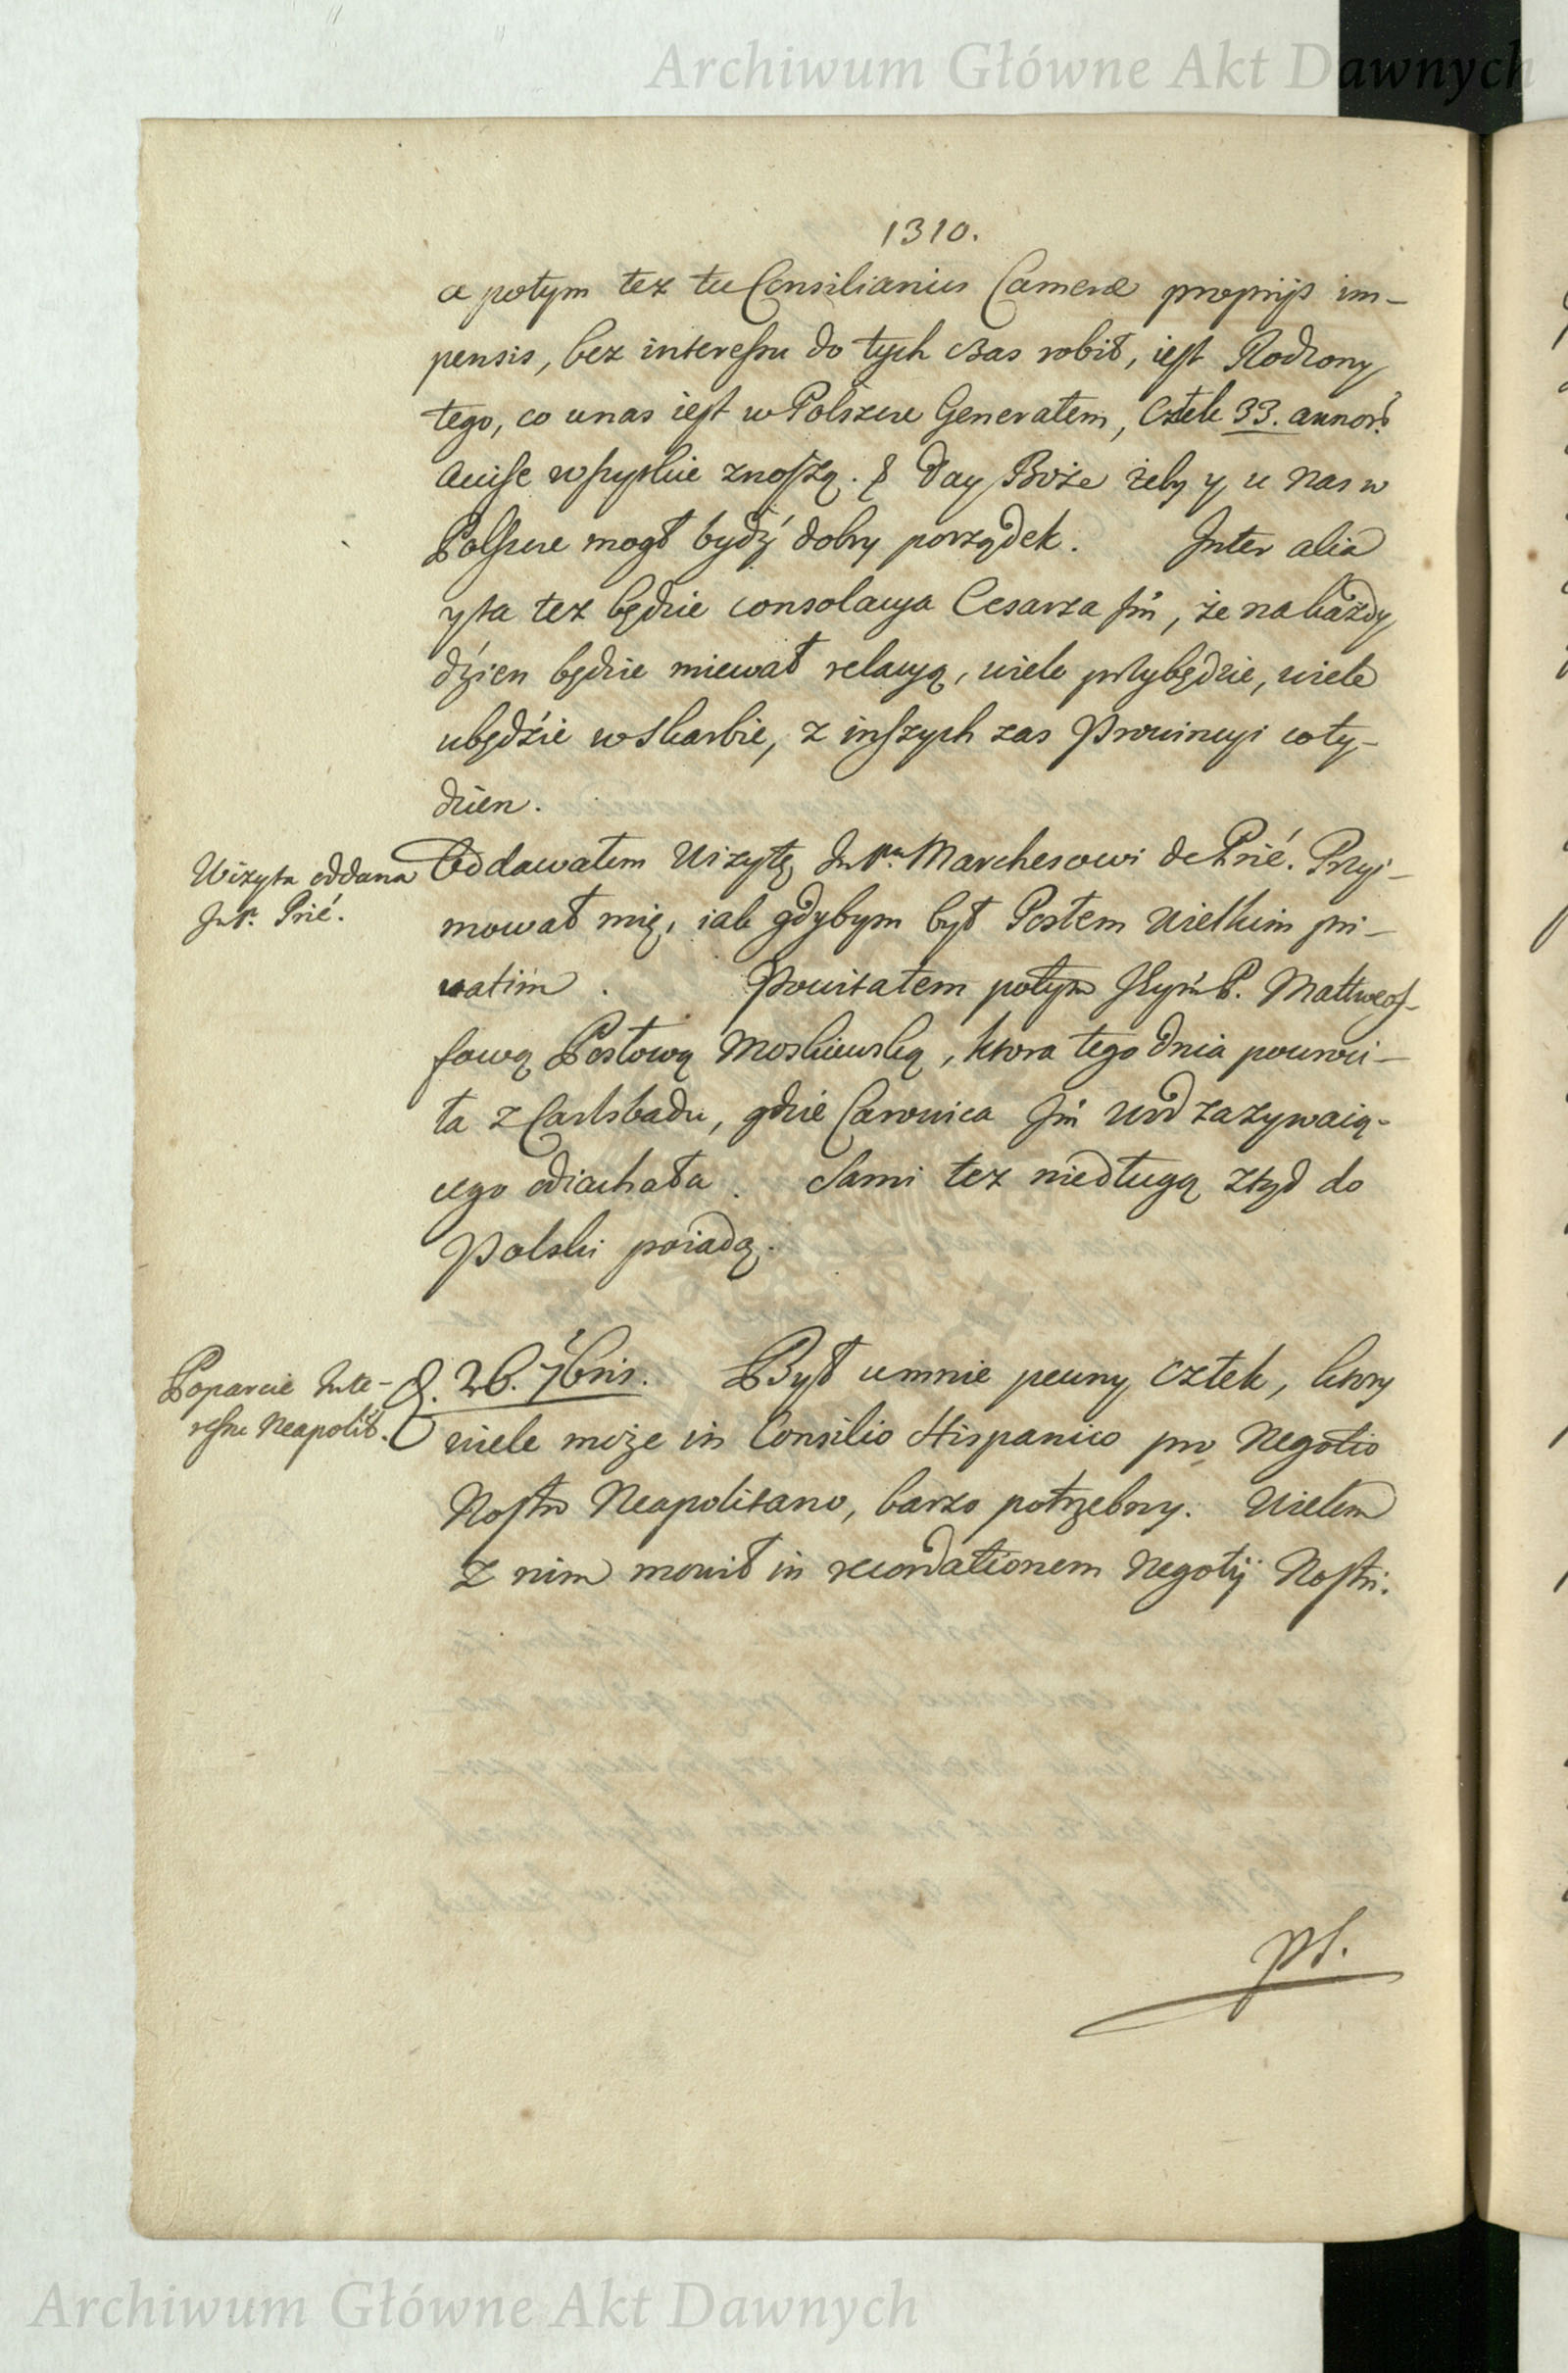 Archiwum Główne Akt Dawnych
1310.
a potym tez tu Consiliarius Cameræ proprijs im-
pensis, bez interessu do tych czas robił, iest Rodzony
tego, co u nas iest w Polszcze Generałem, Człek 33. annor̃.
Acuse wszystkie znoszą. Day Boże żeby y u nas w
Polszcze mogł bydź dobry porządek. Inter alia
y ta tez będzie consolacya Cesarza Jm̃, że na każdy
dzien będzie miewał relacyą, wiele przybędzie, wiele
ubędzie w Skarbie, z inszych zas Prowincyi co ty-
dzien.
Wizyta oddana
Jmṽ. Prié.
Oddawałem Wizytę Jmṽ. Marchesowi de Prié. Przyi-
mował mię, iak gdybym był Posłem Wielkim pri-
vatim. Powitałem potym JKym̃ P. Mattweof-
fową Posłową Moskiewską, ktora tego dnia powroci-
ła z Carlsbadu, gdzie Carowica Jm̃ wod zazywaią-
cego odiachała. Sami tez niedługą ztąd do
Polski poiadą.
Poparcie Inte-
ressu Neapolit.
d. 26. 7bris. Był u mnie pewny człek, ktory
wiele może in Consilio Hispanico pro Negotio
Nostro Neapolitano, barzo potrzebny. Wielem
z nim mowił in recordationem Negotij Nostri.
pt.
Archiwum Główne Akt Dawnych